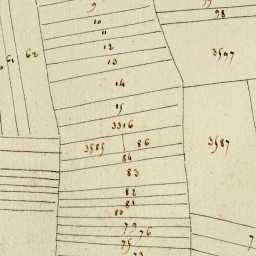 9
98
10
11
61 62 12 3597
13
14
15
3316
3585 86 3587
84
83
82
81
80
79 76
75